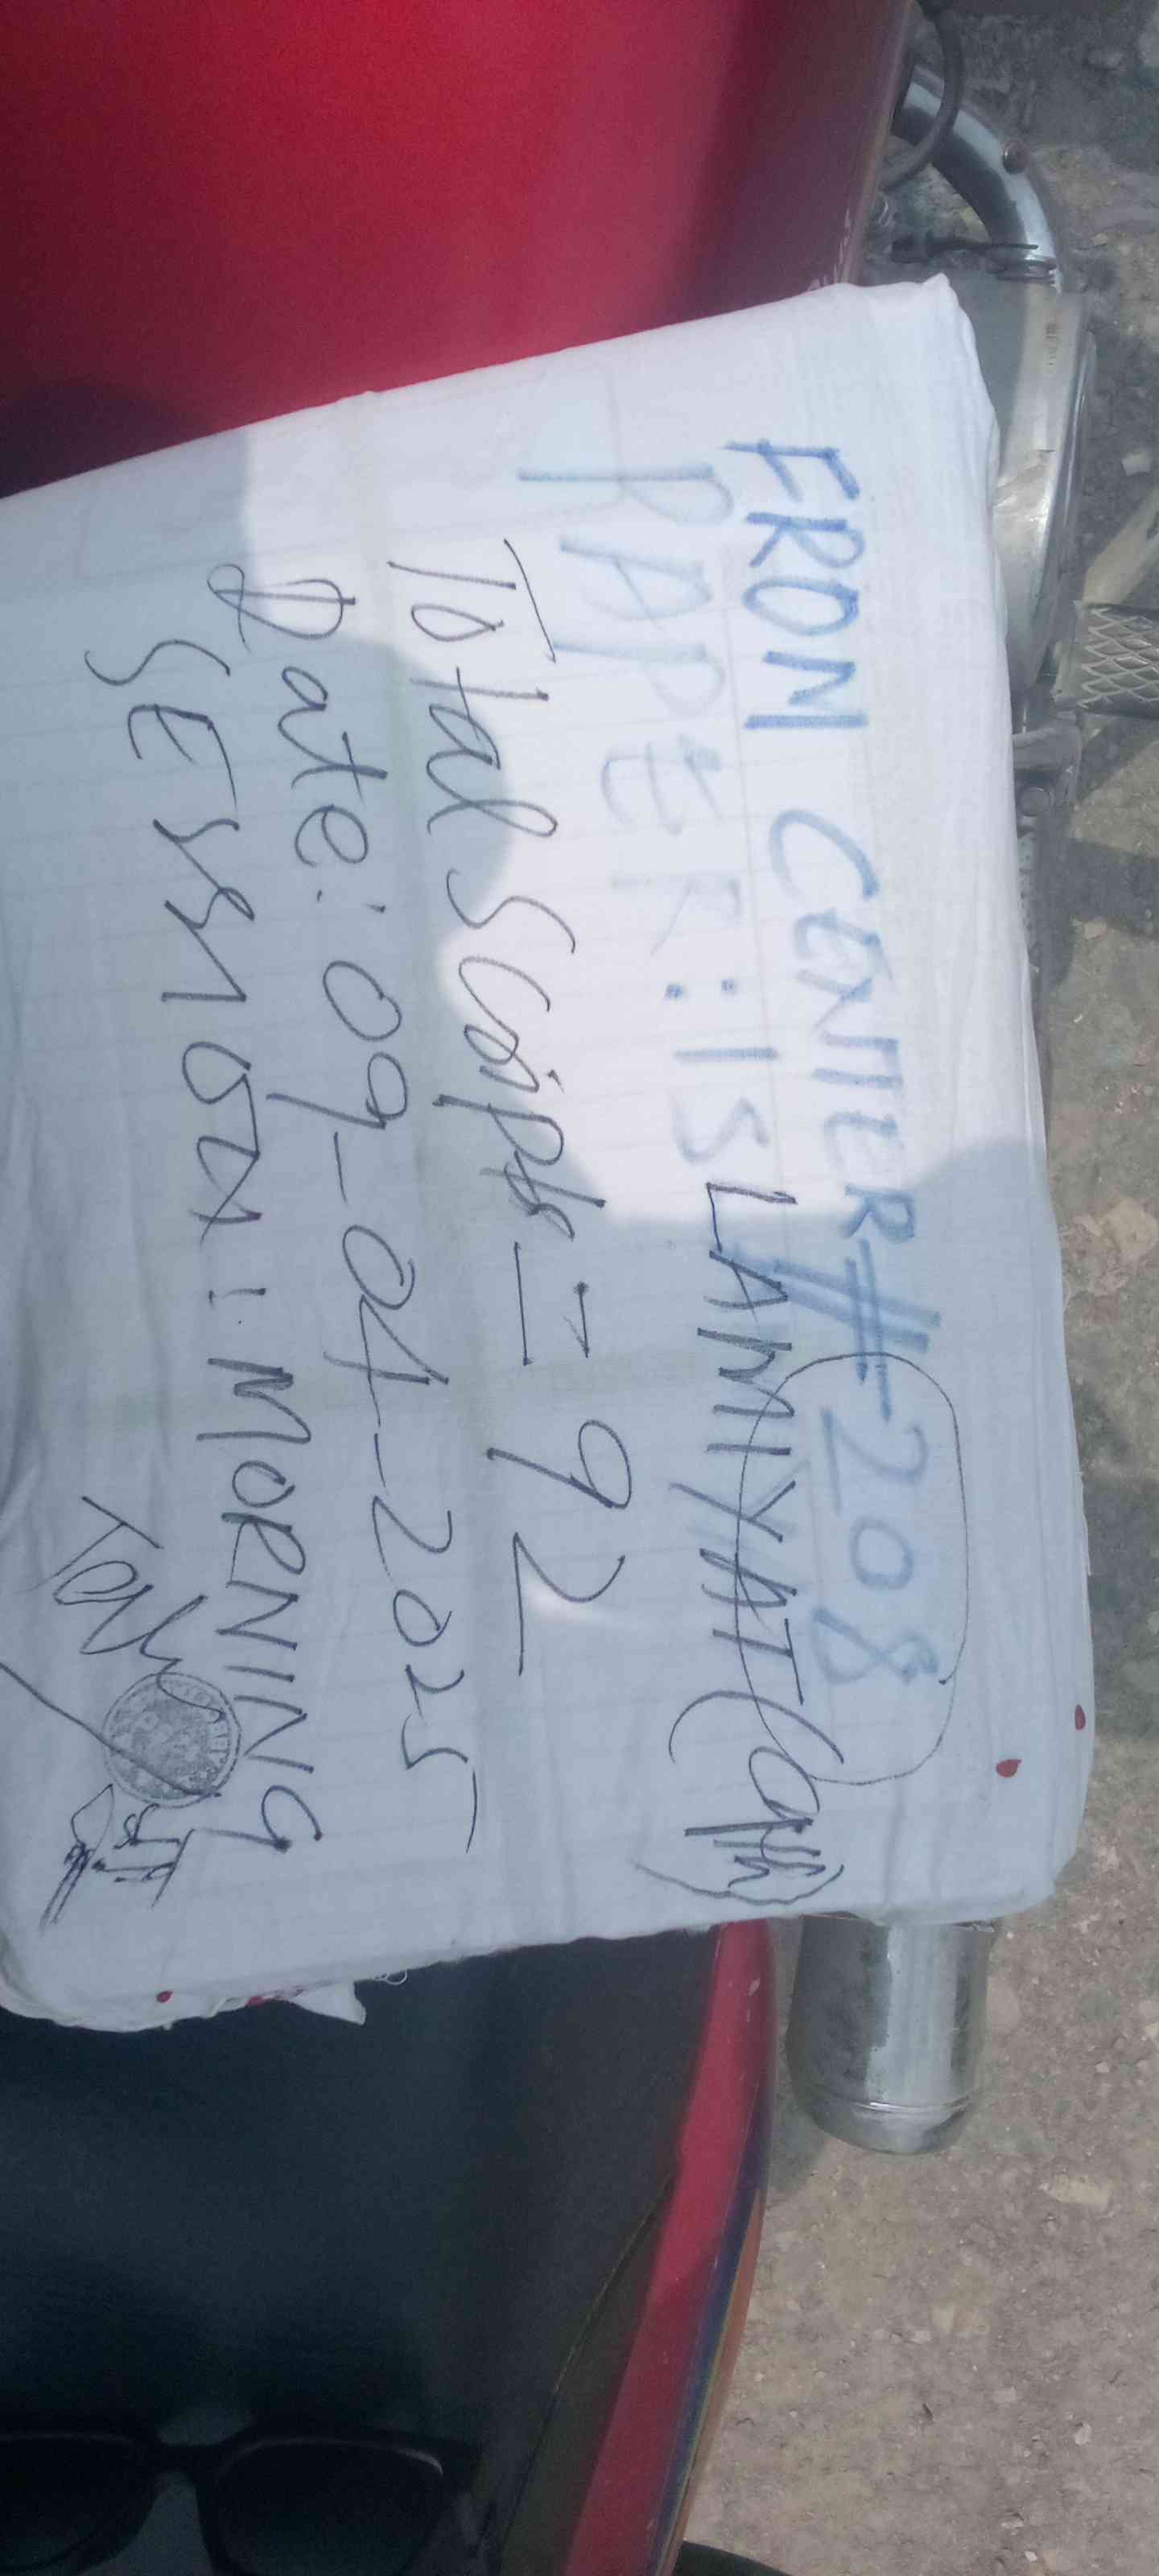 FROM CENTER # 208
PAPER: ISLAMIYAT (9th)
Total Scripts = 92
Date: 09-04-2025
SESSION: MORNING